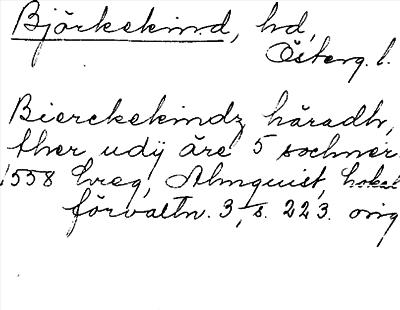 Björkekind, hd,
Österg. l.
Bierckekindz häradh,
ther udij äre 5 sochner.
1558 Greg, Almquist, Lokal
förvaltn. 3, s. 223. orig